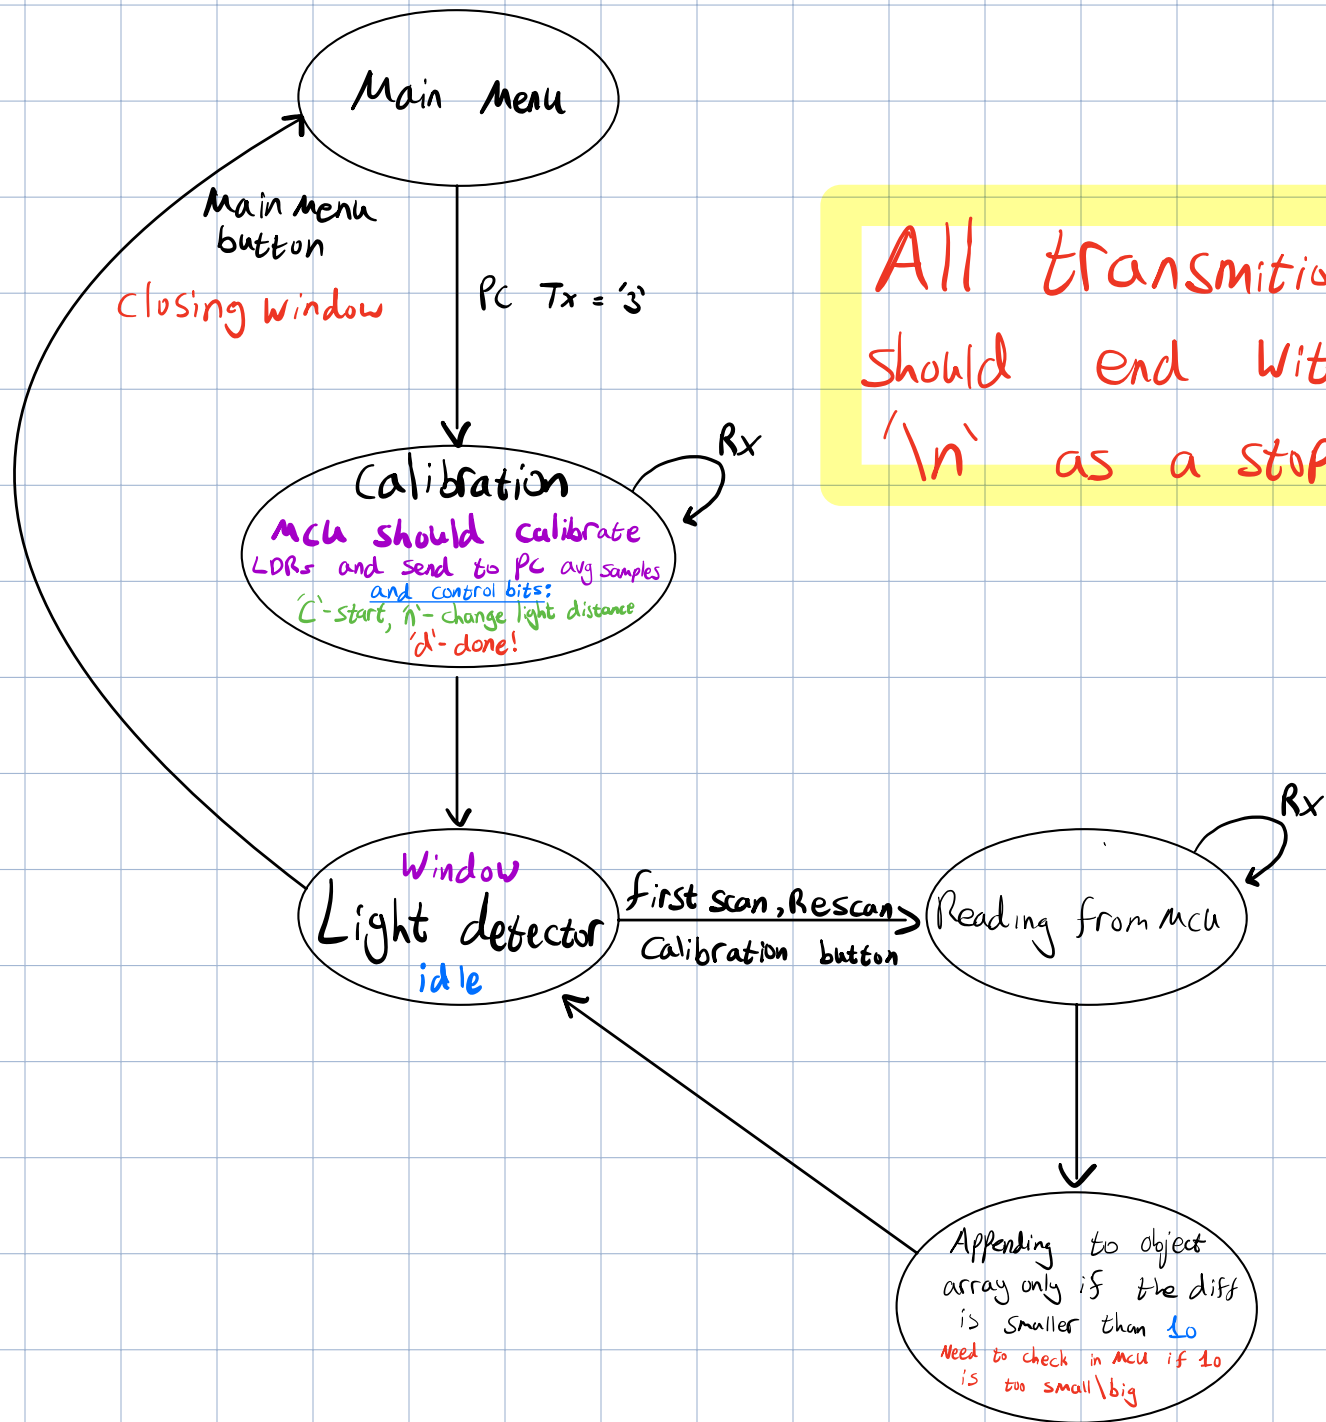 Main Menu
Main Menu
button
Closing window
PC Tx = '3'
All transmitio
should end Wit
'\n' as a stop
Rx
Calibration
MCU should calibrate
LDRs and send to PC avg samples
and control bits:
'C'-start, 'n'-change light distance
'd'-done!
Window
Light detector
idle
first scan, Rescan
Calibration button
Rx
Reading from MCU
Appending to object
array only if the diff
is smaller than 10
Need to check in MCU if 10
is too small\big